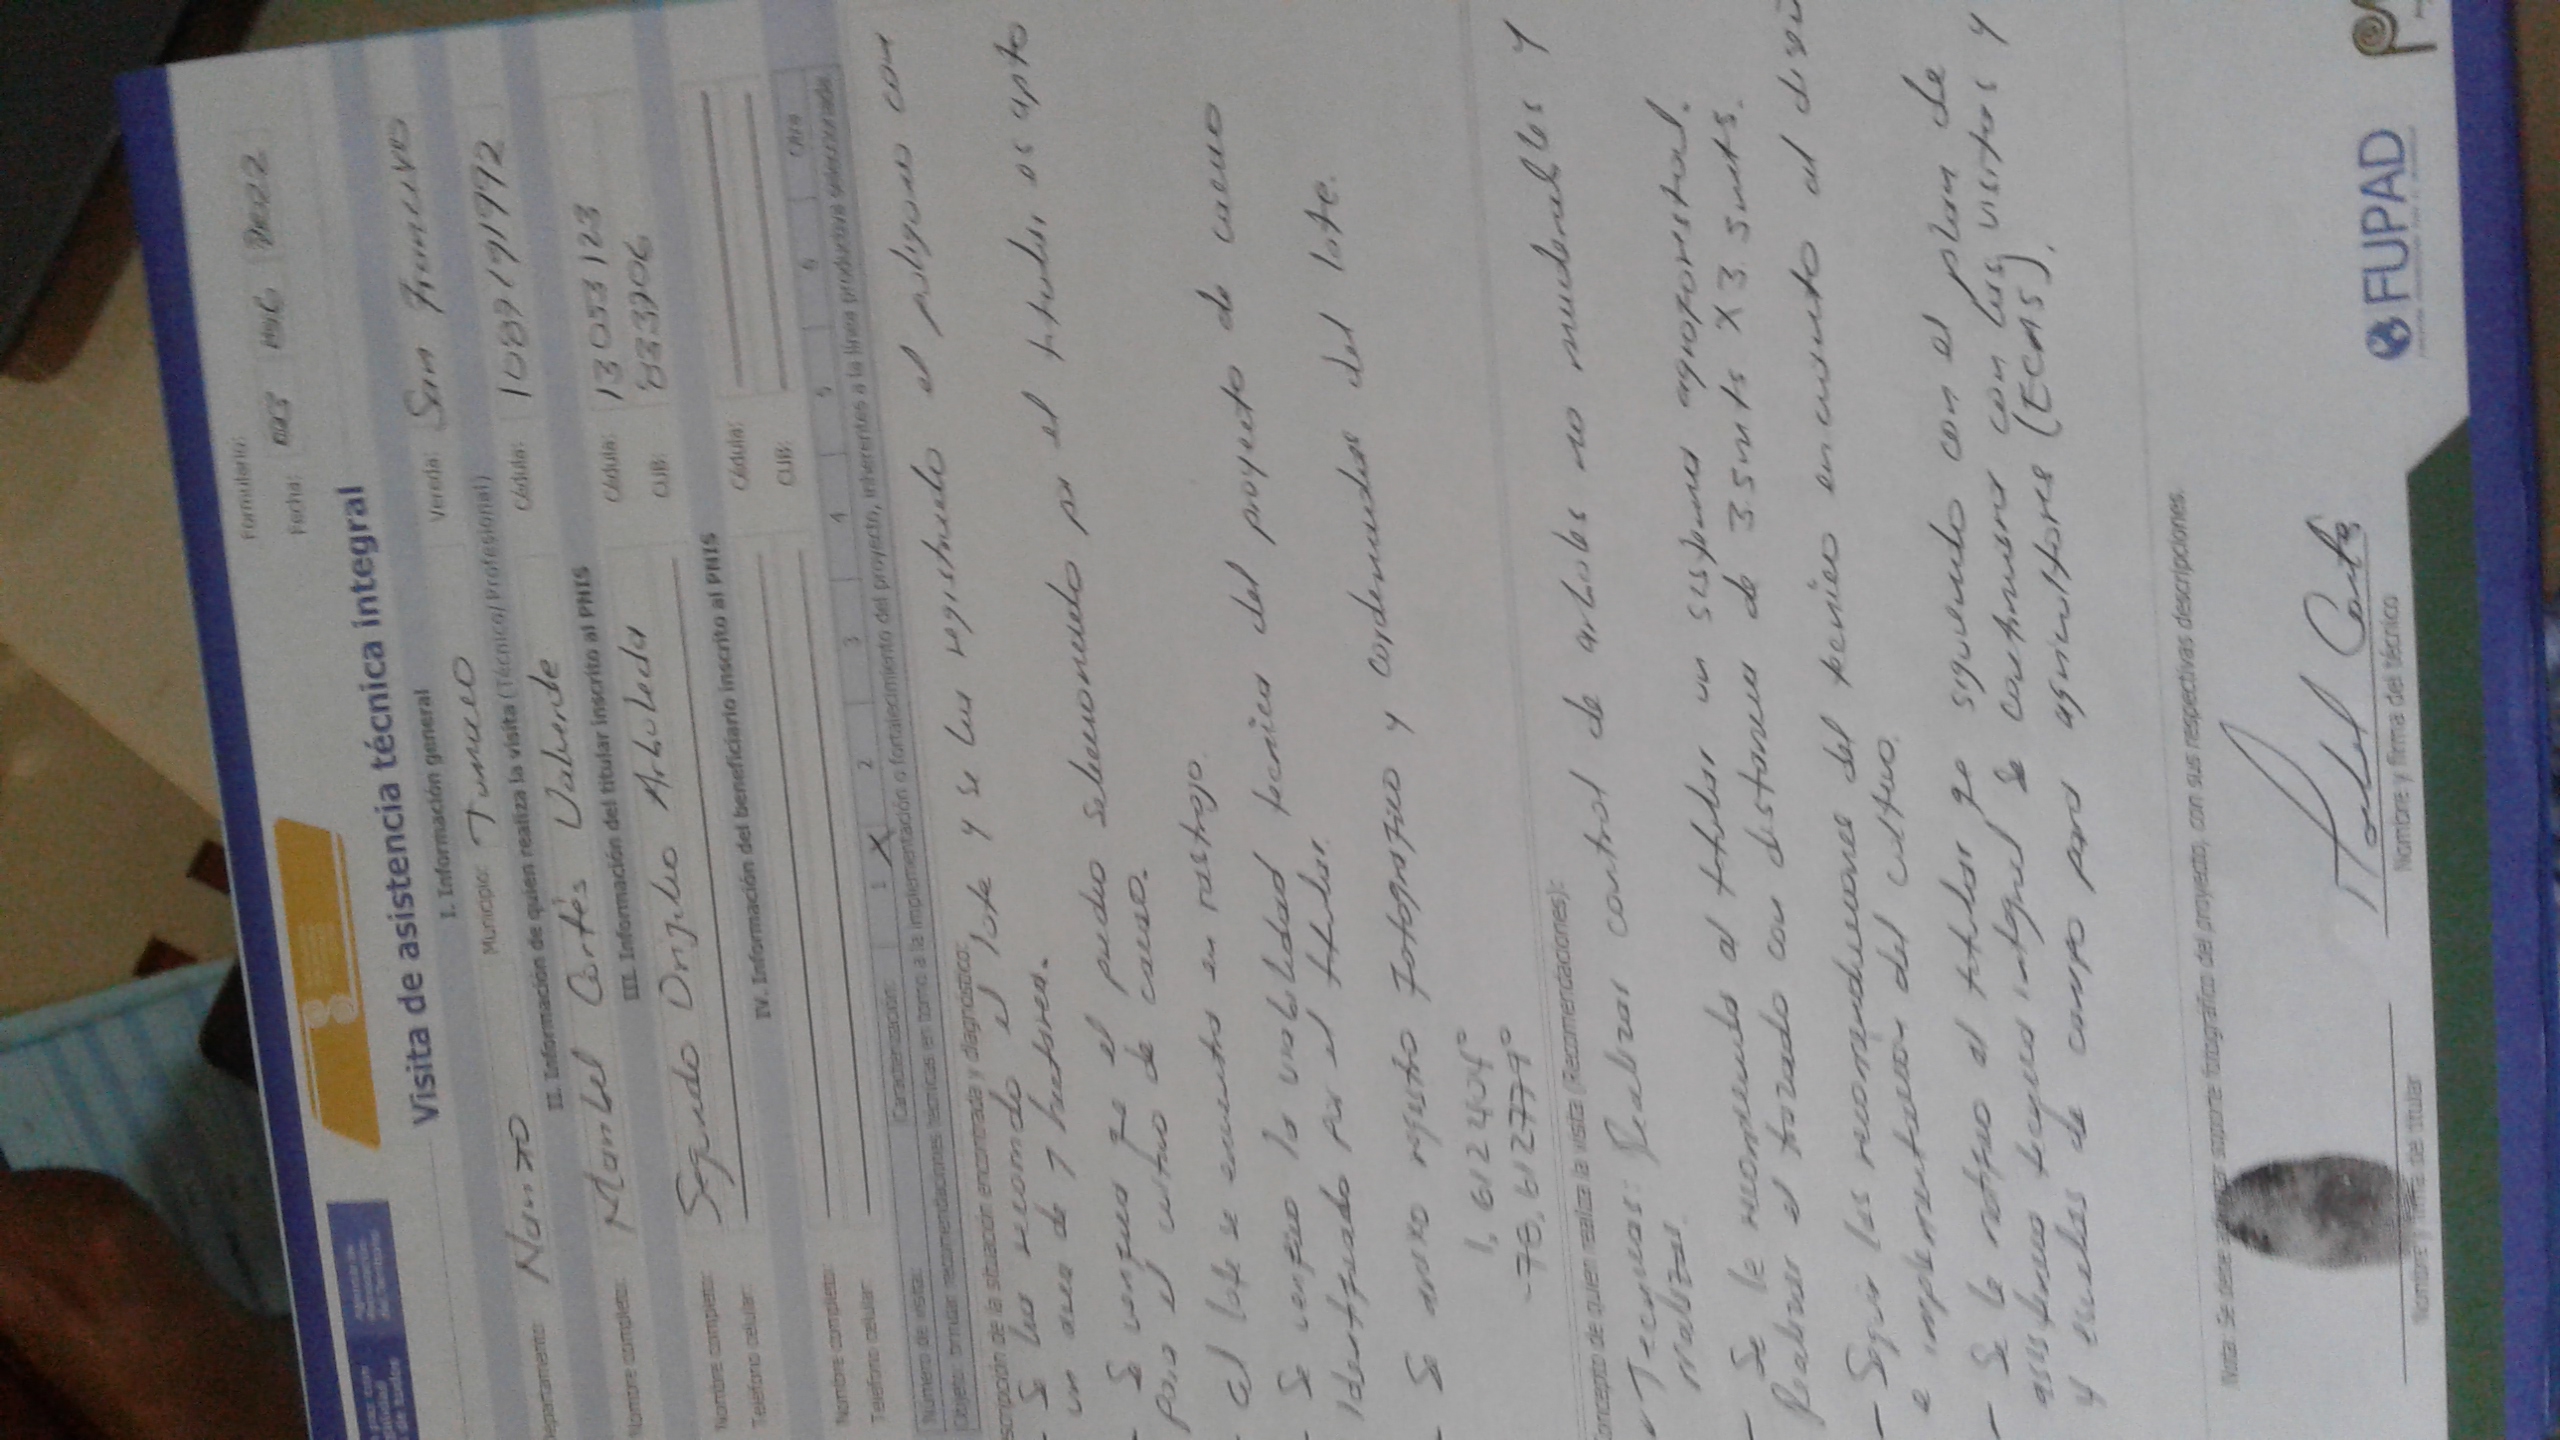 Formulario:
Fecha: 2022
Visita de asistencia técnica integral
I. Información general
Departamento: Nariño Municipio: Tumaco Vereda: San Francisco
II. Información de quien realiza la visita (Técnico/Profesional)
Nombre completo: Maribel Cortés Valverde Cédula: 1089191972
III. Información del titular inscrito al PNIS
Nombre completo: Segundo Virgilio Arboleda Cédula: 13053123
Telefono celular: CUB: 833706
IV. Información del beneficiario inscrito al PNIS
Nombre completo: Cédula:
Telefono celular: CUB:
Número de visita: Caracterización: 1 X 2 3 4 5 6 Otra
Objeto: brindar recomendaciones técnicas en torno a la implementación o fortalecimiento del proyecto, inherentes a la línea productiva seleccionada
escripción de la situación encontrada y diagnóstico:
- Se hace recorrido el lote y se hace registrando el poligono con
un area de 1 hectarea.
- Se verifica que el predio seleccionado por el titular es apto
para el cultivo de cacao.
- el lote se encuentra en rastrojo.
- Se verifico la viabilidad tecnica del proyecto de cacao
identificado por el titular.
- Se anexo registro fotografico y cordenadas del lote.
1,612404°
-78,612779°
oncepto de quien realiza la visita (Recomendaciones):
Tecnicas: Realizar control de arboles no maderables y
- Se le recomienda al titular un sistema agroforestal.
Realizar el trazado con distancia de 3.5mts X 3.5mts.
- Seguir las recomendaciones del tecnico en cuanto al diseñ
e implementacion del cultivo.
- Se le notifico al titular que siguiendo con el plan de
asistencia tecnica integral se continuara con las visitas y
y escuelas de campo para agricultores (ECAS).
Nota: Se debe soporte fotográfico del proyecto, con sus respectivas descripciones.
Maribel Cortés
Nombre y firma de titular Nombre y firma del técnico
FUPAD